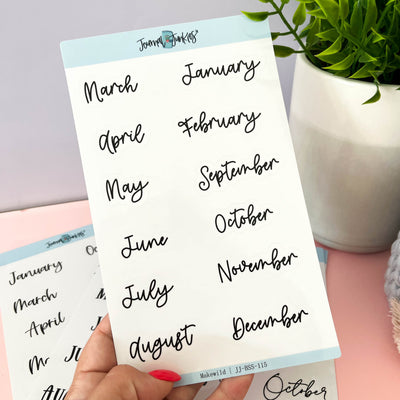 Journal Junkies
March January
April February
May September
June October
July November
August December
Makewild | JJ-BSS-115
January
March
April
October